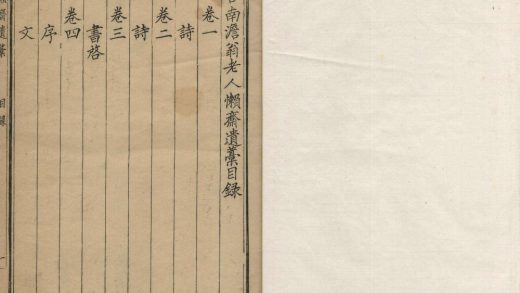 南澹翁老人懶齋遺藁目録
卷一
詩
卷二
詩
卷三
書啓
卷四
序
文
齋遺藁 目録